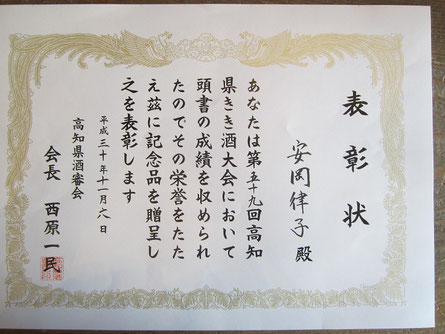 表彰状
安岡律子殿
あなたは第五十九回高知
県きき酒大会において
頭書の成績を収められ
たのでその栄誉をたた
え茲に記念品を贈呈し
之を表彰します
平成三十年十一月六日
高知県酒審会
会長 西原一民